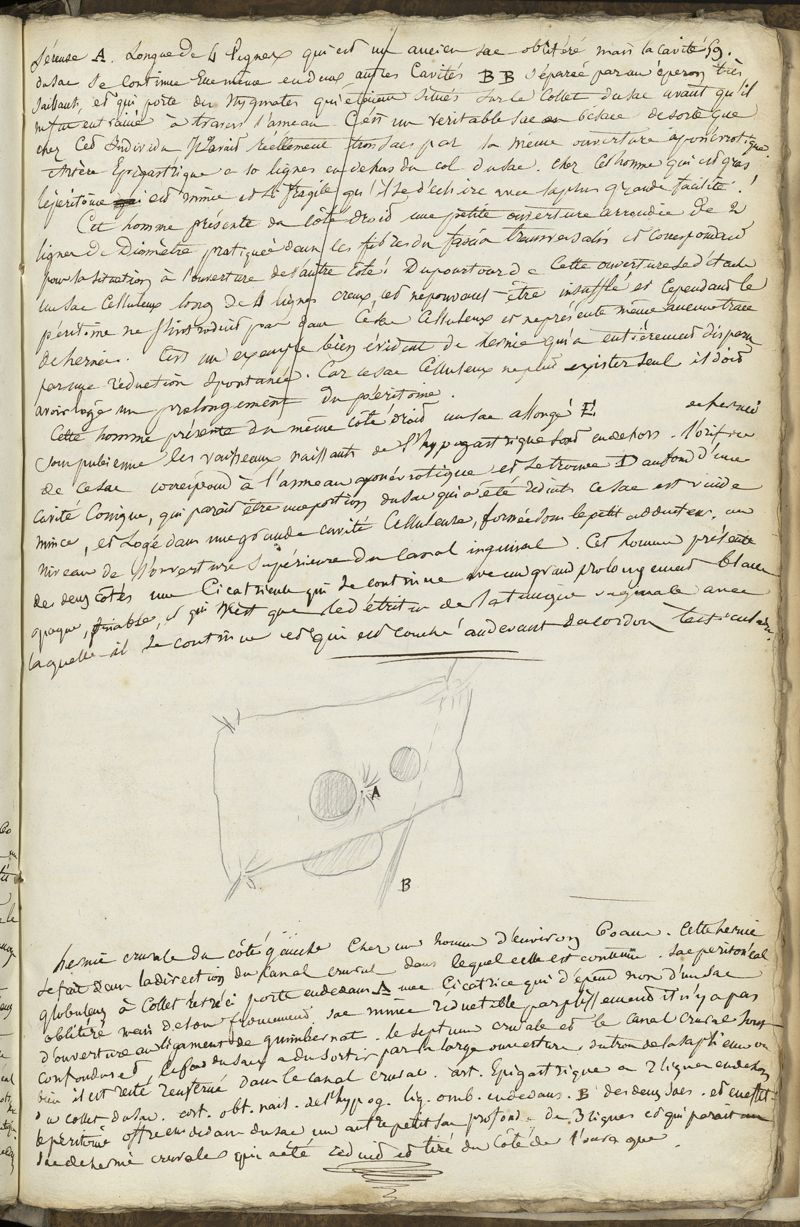 séreuse A. Longue de 4 lignes qui est un ancien sac oblitéré mais la cavité 59.
du sac se continue elle même en deux autres cavités BB séparée par un éperon très
saillant, et qui porte des stygmates qui étoient situés sur le collet du sac avant qu'il
entrainé à travers l'anneau C'est un veritable sac en bésace de sorte que
chez cet individu il y avait réellement trois sacs par la même ouverture aponévrotique.
Artère Epigastrique a 10 lignes en dehors du col du sac. chez cet homme qui est gras
le péritoine est mince et si fragile qu'il se déchire avec la plus grande facilité !
Cet homme présente du côté droit une petite ouverture arrondie de 2
lignes de Diamètre pratiquée dans les fibres du fascia transversalis et correspondant
pour la situation à l'ouverture de l'autre côté. Du pourtour de Cette ouverture se détache
un sac Celluleux long de 4 lignes creux, et pouvant être insufflé et cependant le
péritoine ne s'introduit pas dans ce sac Celluleux et ne présente même aucune trace
de hernie. C'est un exemple bien évident de hernie qui a entièrement disparu
par une réduction spontanée. Car ce sac Celluleux ne peut exister seul il doit
avoir logé un prolongement du péritoine.
Cette homme présente du même côté droit un sac allongé E de hernie
sous pubienne les vaisseaux naissants de l'hypogastrique sont en dehors. l'orifice
de ce sac correspond à l'anneau aponévrotique et se trouve D au fond d'une
cavité Conique, qui parait être une portion du sac qui a été réduite ce sac est vuide
mince, et Logé dans une grande cavité Celluleuse, formée sous le petit adducteur, au
niveau de l'ouverture supérieure du Canal inguinal. Cet homme présente
des deux côtés une Cicatricule qui se continue avec un grand prolongement blanc
opaque, friable, et qui n'est que le détritus de la tunique vaginale avec
laquelle il se continue et qui est couché au devant du cordon testiculaire.
A
B
hernie crurale du côté gauche Chez un homme d'environ 60 ans. Cette hernie
se fait dans la direction du Canal crural dans lequel elle est contenue. sac péritonéal
globuleux à Collet retréci porte en dedans A une Cicatrice qui dépend non d'un sac
oblitéré mais de son froncement sac mince réductible par plissement il n'y a pas
d'ouverture au ligament de guimbernat. le septum crurale et le Canal crural sont
confondus et le fond du sac a du sortir par la large ouverture du tron de la saphène ou
bien il est resté renfermé dans le canal crural. art. Epigastrique a 2 lignes en dehors
du collet du sac. art. obt. nais. de l'hypog. lig. omb. en dedans. B des deux sacs. et en effet
le péritoine offre en dedans du sac un autre petit sac profond de 3 lignes et qui parait un
sac de hernie crurale qui a été réduit et tiré du côté de l'ouraque.